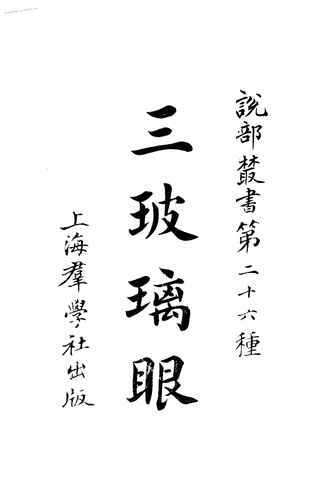 說部叢書第二十六種
三玻璃眼
上海羣學社出版